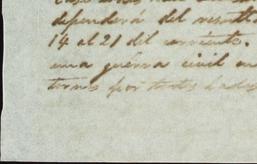 dependerá del result
14 al 21 del corriente.
una guerra civil en
por todos lados